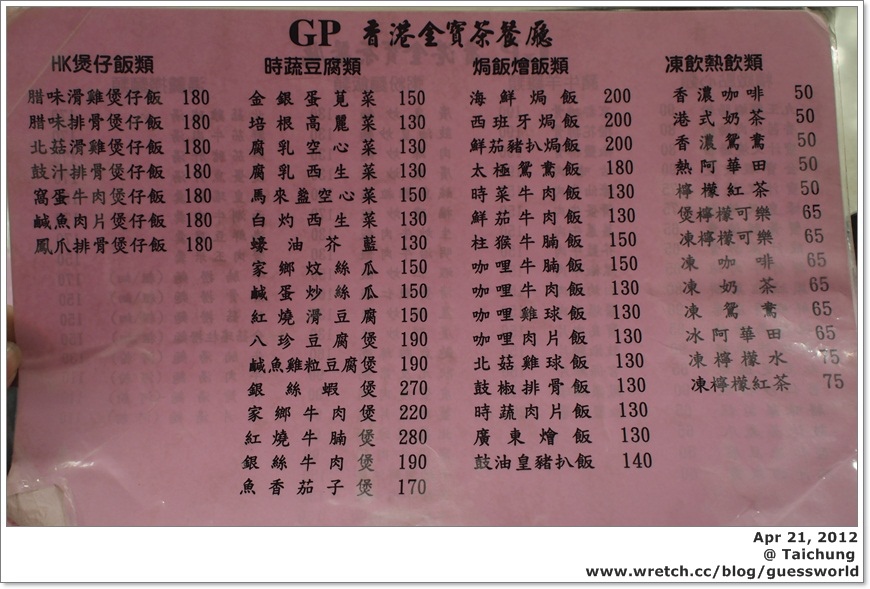 GP 香港金寶茶餐廳
HK煲仔飯類
腊味滑雞煲仔飯 180
腊味排骨煲仔飯 180
北菇滑雞煲仔飯 180
鼓汁排骨煲仔飯 180
窩蛋牛肉煲仔飯 180
鹹魚肉片煲仔飯 180
鳳爪排骨煲仔飯 180
時蔬豆腐類
金銀蛋莧菜 150
培根高麗菜 130
腐乳空心菜 130
腐乳西生菜 130
馬來盞空心菜 150
白灼西生菜 130
蠔油芥藍 130
家鄉炆絲瓜 150
鹹蛋炒絲瓜 150
紅燒滑豆腐 150
八珍豆腐煲 190
鹹魚雞粒豆腐煲 190
銀絲蝦煲 270
家鄉牛肉煲 220
紅燒牛腩煲 280
銀絲牛肉煲 190
魚香茄子煲 170
焗飯燴飯類
海鮮焗飯 200
西班牙焗飯 200
鮮茄豬扒焗飯 200
太極鴛鴦飯 180
時菜牛肉飯 130
鮮茄牛肉飯 130
柱猴牛腩飯 150
咖哩牛腩飯 150
咖哩牛肉飯 130
咖哩雞球飯 130
咖哩肉片飯 130
北菇雞球飯 130
鼓椒排骨飯 130
時蔬肉片飯 130
廣東燴飯 130
鼓油皇豬扒飯 140
凍飲熱飲類
香濃咖啡 50
港式奶茶 50
香濃鴛鴦 50
熱阿華田 50
檸檬紅茶 50
煲檸檬可樂 65
凍檸檬可樂 65
凍咖啡 65
凍奶茶 65
凍鴛鴦 65
冰阿華田 65
凍檸檬水 75
凍檸檬紅茶 75
Apr 21, 2012
@ Taichung
www.wretch.cc/blog/guessworld